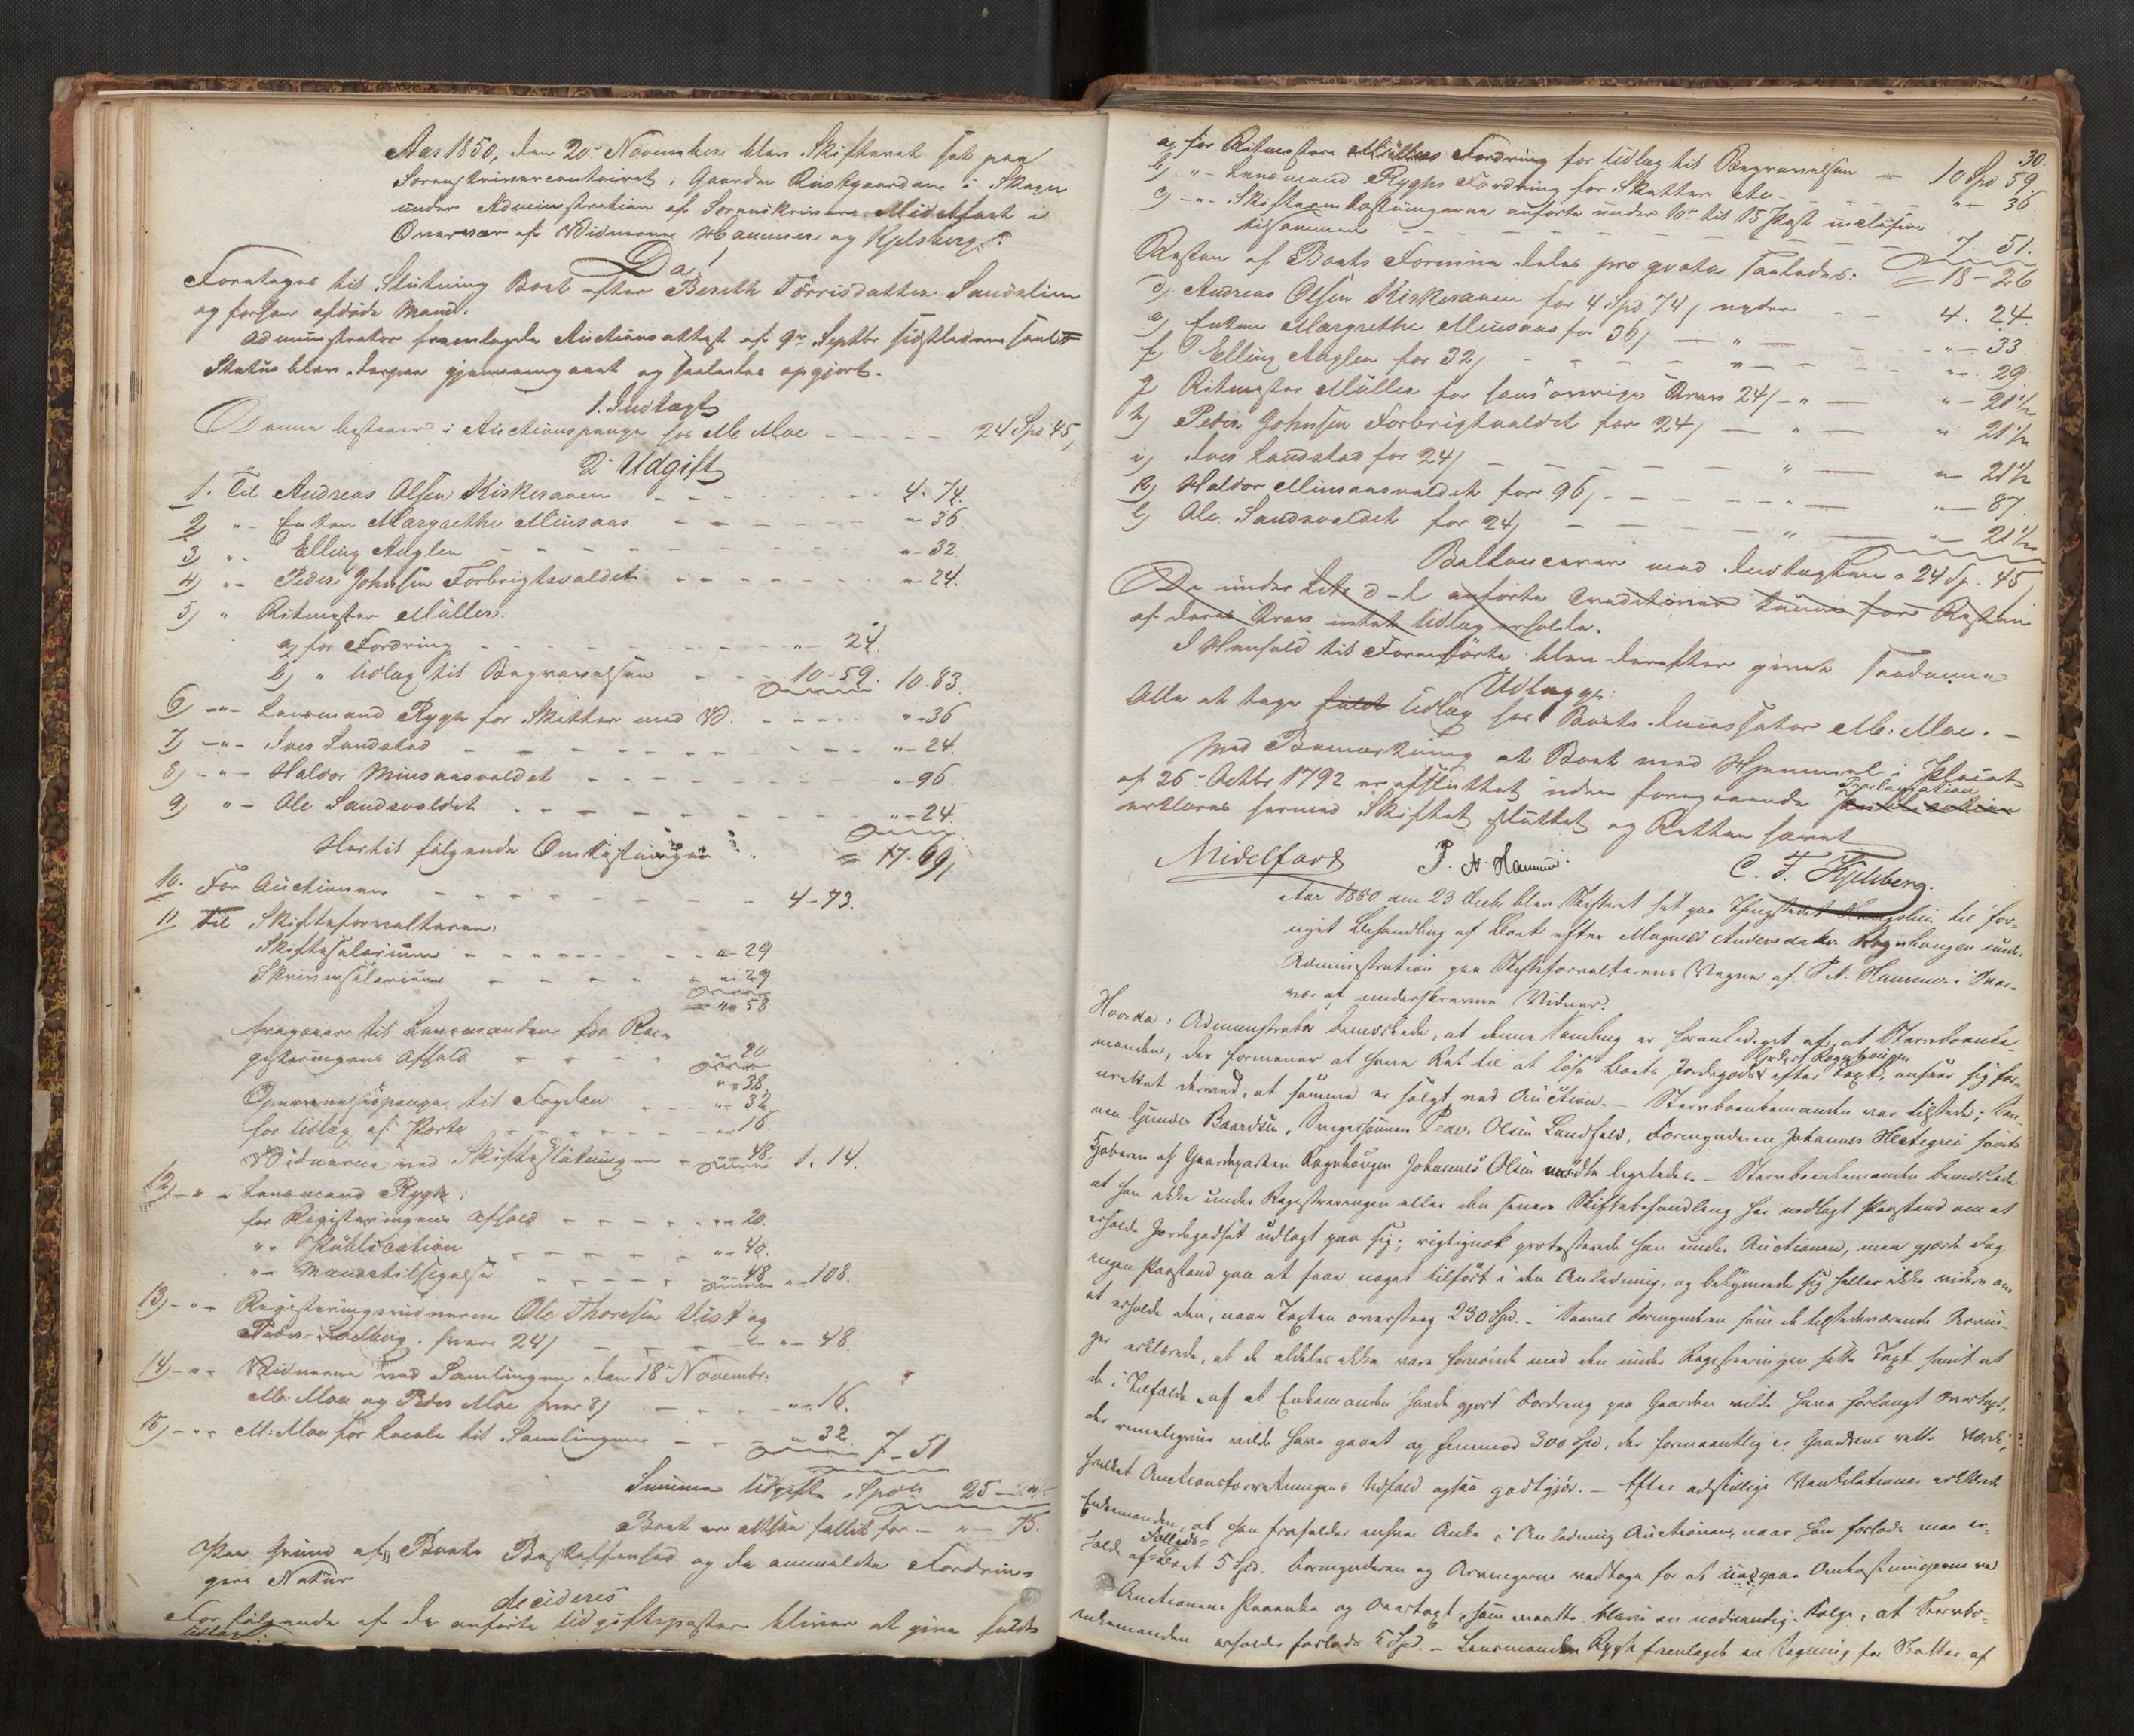 Aar 1850, den 20de November blev Skifteret sat paa
Sorenskrivercontoiret i Gaarden Rustgaarden i Skogn
under Administration af Sorenskriver Midelfart i
Overvær af Vidnerne Hammer og Kjelsberg.
Da!
Foretages til Slutning Boet efter Bereth Torrisdatter Sandalien
og forhen afdøde Mand.
Administrator fremlagde Auctionsattest af 9de Septbr sidstleden samt
Status blev derpaa gjennemgaaet og saaledes opgjort.
1. Indtægt
Denne bestaaer i Auctionspenge hos M. Moe - - - - 24 Spd 45
2. Udgift
1. Til Andreas Olsen Kirkeraaen - - - 4. 74.
2) " - Enken Margrethe Minsaas - - - " 36.
3) " - Elling Auglen - - - " - 32
4) " - Peder Johnsen Forbrigtsvaldet - - - " - 24.
5) " Ritmester Müller:
a) for Fordring - - - " 24.
b) " Udlæg til Begravelsen - - 10 - 59. 10. 83.
6) - " - Lensmand Rygh for Skatter med V. - - - " - 36
7) - " - Iver Landstad - - - " - 24.
8) - " - Haldor Minsaasvaldet - - - " - 96.
9) " - Ole Sandsvaldet - - - " - 24.
Hertil følgende Omkostninger = 17. 69
10. For Auctionen - - - 4 - 73.
11 Til Skifteforvalteren:
Skiftesalarium - - - " - 29
Skriversalarium - - - " - 29.
" 58
fragaaer til Lensmanden for Re-
gistreringens Afhold - - - " 20
" - 38.
Opnævnelsespenge til Fogden - - - " - 32
for Udlæg af Porto - - - " 16.
Vidnerne ved Skifteslutningen - " - 48. 1. 14.
12) - " - Lensmand Rygh:
for Registreringens Afhold - - - " 20.
" - Publication - - - " - 40.
" - Mandstilsigelse - - - " - 48 " - 108.
13) - " - Registreringsvidnerne Ole Thoresen Vist og
Peder Solberg, hver 24 - - - " " 48.
14) - " - Vidnerne ved Samlingen den 18de Novembr:
M. Moe og Peder Moe hver 8 - - - " 16.
15) - " - M. Moe for Locale til Samlingerne - - - " 32. 7 - 51
Summa Udgift Spd 25 -
Boet er altsaa fallit for - " - 75.
Paa Grund af Boets Beskaffenhed og de anmeldte Fordrin-
gers Natur
decideres
For følgende af de anførte Udgiftsposter bliver at give fuldt
Udlæg:
30.
a) for Ritmester Müllers Fordring for Udlæg til Begravelsen - 10 Spd 59.
b) " - Lensmand Ryghs Fordring for Skatter etc - " - 36
c) - " - Skifteomkostningerne anførte under 10de til 15 Post inclusive
tilsammen - - - 7. 51.
= 18 - 26
Resten af Boets Formue deles pro qvota saaledes:
d) Andreas Olsen Kirkeraaen for 4 Spd 74, nyder - - 4. 24.
e) Enken Margrethe Minsaas for 36 - " - " - 33.
f) Elling Auglen for 32, - - - " - " - 29.
g) Ritmester Müller for hans øvrige Krav 24 - " - " - 21 1/2
h) Peder Johnsen Forbrigtvaldet for 24 - " - " 21 1/2
i) Iver Landstad for 24 - " - " 21 1/2
k) Haldor Minsaasvaldet for 96, - - " - " - 87.
l) Ole Sandsvaldet for 24 - " - " - 21 1/2
Ballancerer med Indtægten = 24 Sp. 45
De under Litr d - l anførte Creditorer kunne for Resten
af deres Krav intet Udlæg erholde.
I Henhold til Foranførte blev derefter givet saadanne
Udlægge:
Alle at tage fuldt Udlæg hos Boets Incassator M. Moe. -
Med Bemærkning at Boet med Hjemmel i Placat
af 26de Octbr 1792 er afsluttet uden foregaaende Proclamation
erklæres hermed Skiftet sluttet og Retten hævet
Midelfart P. N. Hammer. C. F. Kjelsberg.
Aar 1850 den 23 blev Skifteret sat paa Thingstedet til for-
nyet Behandling af Boet efter Magnild Andersdatter Rognhaugen under
Administration paa Skifteforvalterens Vegne af P. N. Hammer i Over-
vær af underskrevne Vidner.
Hvorda, Administrator bemærkede, at denne Samling er foranlediget af, at Stervboenke-
manden, der formener at have Ret til at løse Boets Jordegods Gaarden Rognhaugen efter Taxt, anseer sig for-
urettet derved, at samme er solgt ved Auction. - Stervboenkemanden var tilstede; Søn-
nen Gunder Baardsen, Svigersønnen Peder Olsen Lundfald, Formynderen Johannes Hestegrei samt
Kjøberen af Gaardparten Rognhaugen Johannes Olsen mødte ligeledes. - Stervboenkemanden bemærkede
at han ikke under Registreringen eller den senere Skiftebehandling har nedlagt Paastand om at
erholde Jordegodset udlagt paa sig; rigtignok protesterede han under Auctionen, men gjorde dog
ingen Paastand paa at faae noget tilført i den Anledning, og bekymrede sig heller ikke videre om
at erholde den, naar Taxten oversteg 230 Spd. - Saavel Formynderen som de tilstedeværende Arvin-
ger erklærede, at de aldeles ikke vare fornøiede med den under Registreringen satte Taxt samt at
de i Tilfælde af at Enkemanden havde gjort Fordring paa Gaarden vilde have forlangt Overtaxt,
der rimeligviis vilde have gaaet op henimod 300 Spd, der formeentlig er Gaardens rette Værdi,
hvilket Auctionsforretningens Udfald ogsaa godtgjør. - Efter adskillige Ventilationer erklærede
Enkemanden, at han frafalder enhver Anke i Anledning Auctionen, naar han forlods maa er-
holde af Fælleds-Boet 5 Spd. Formynderen og Arvingerne vedtoge for at undgaae Omkostningerne ved
Auctionens Paaanke og Overtaxt, som maatte blive en nødvendig Følge, at Stervbo-
enkemanden erholder forlods 5 Spd. - Lensmanden Rygh fremlagde en Regning for Skatter af